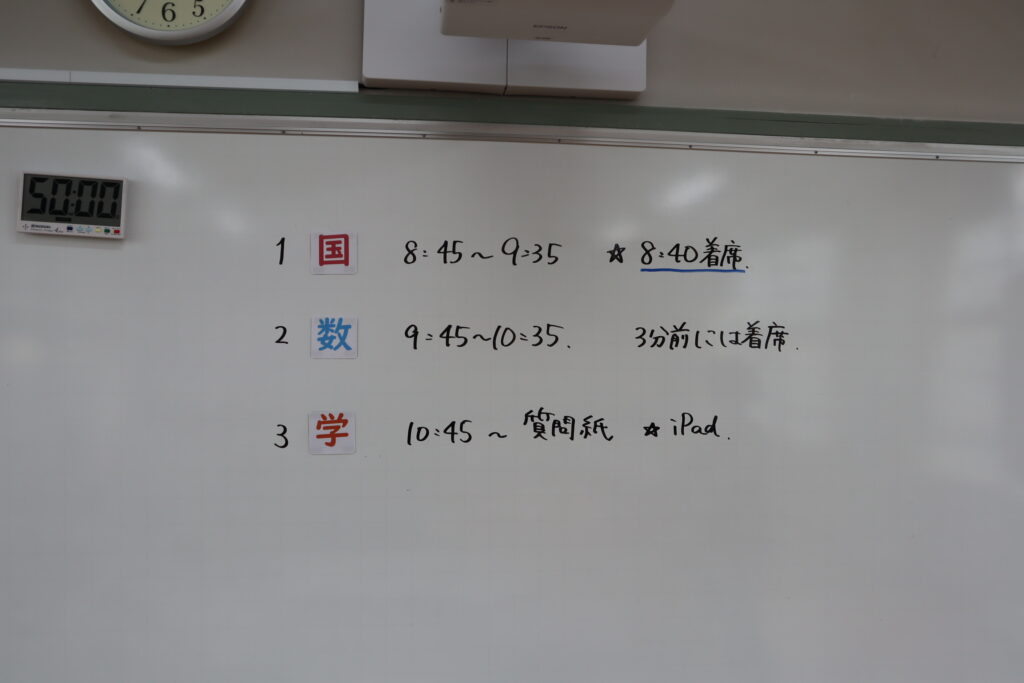 7 6 5
EPSON
50:00
1 国 8:45～9:35 ☆ 8:40着席.
2 数 9:45～10:35. 3分前には着席.
3 学 10:45～ 質問紙 ☆ iPad.